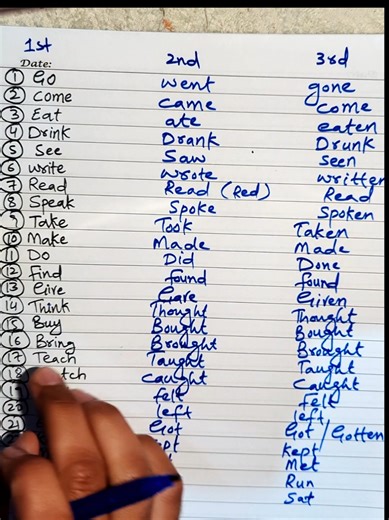 1st 2nd 3rd
Date:
1 Go went gone
2 Come came come
3 Eat ate eaten
4 Drink Drank Drunk
5 See Saw seen
6 write wrote written
7 Read Read (Red) Read
8 Speak Spoke Spoken
9 Take Took Taken
10 Make Made Made
11 Do Did Done
12 Find found found
13 Give Gave Given
14 Think Thought Thought
15 Buy Bought Bought
16 Bring Brought Brought
17 Teach Taught Taught
18 caught Caught
felt felt
left left
Got Got/Gotten
kept
Met
Run
Sat